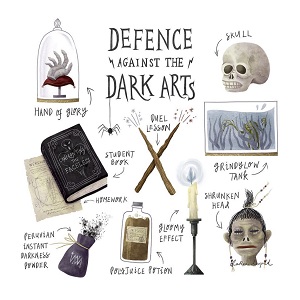 DEFENCE
AGAINST THE
DARK ARTS
SKULL
HAND of GLORY
DUEL
LESSON
STUDENT
BOOK
GRINDYLOW
TANK
HOMEWORK
SHRUNKEN
HEAD
GLOOMY
EFFECT
PERUVIAN
INSTANT
DARKNESS
POWDER
POLYJUICE POTION